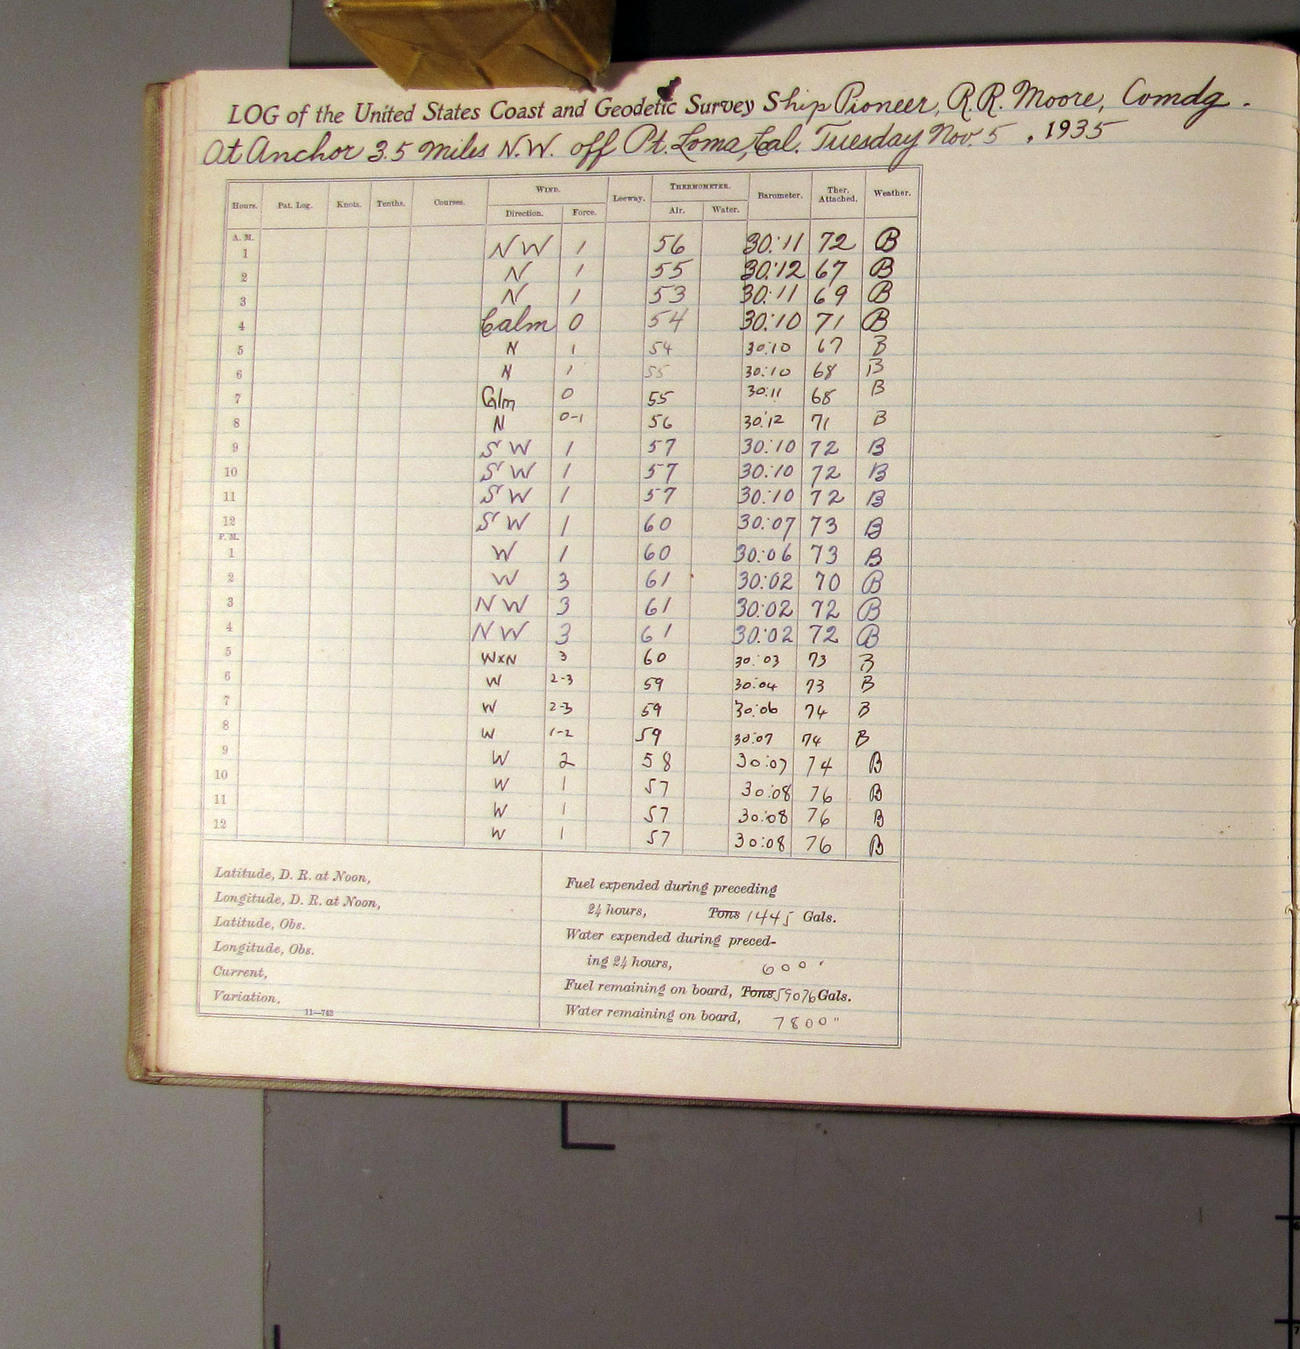 LOG of the United States Coast and Geodetic Survey Ship Pioneer, R.R. Moore, Comdg.
At Anchor 3.5 miles N.W. off Pt. Loma, Cal. Tuesday Nov. 5, 1935
Hours. Pat. Log. Knots. Tenths. Courses. WIND. Direction. Force. Leeway. THERMOMETER. Air. Water. Barometer. Ther. Attached. Weather.
A. M.
1 NW 1 56 30:11 72 B
2 N 1 55 30:12 67 B
3 N 1 53 30:11 69 B
4 Calm 0 54 30:10 71 B
5 N 1 54 30:10 67 B
6 N 1 55 30:10 68 B
7 Calm 0 55 30:11 68 B
8 N 0-1 56 30:12 71 B
9 SW 1 57 30:10 72 B
10 SW 1 57 30:10 72 B
11 SW 1 57 30:10 72 B
12 SW 1 60 30:07 73 B
P. M.
1 W 1 60 30:06 73 B
2 W 3 61 30:02 70 B
3 NW 3 61 30:02 72 B
4 NW 3 61 30:02 72 B
5 WxN 3 60 30:03 73 B
6 W 2-3 59 30:04 73 B
7 W 2-3 59 30:06 74 B
8 W 1-2 59 30:07 74 B
9 W 2 58 30:07 74 B
10 W 1 57 30:08 76 B
11 W 1 57 30:08 76 B
12 W 1 57 30:08 76 B
Latitude, D. R. at Noon,
Longitude, D. R. at Noon,
Latitude, Obs.
Longitude, Obs.
Current,
Variation,
11—743
Fuel expended during preceding
24 hours, Tons 1445 Gals.
Water expended during preced-
ing 24 hours, 600 "
Fuel remaining on board, Tons 59076 Gals.
Water remaining on board, 7800 "